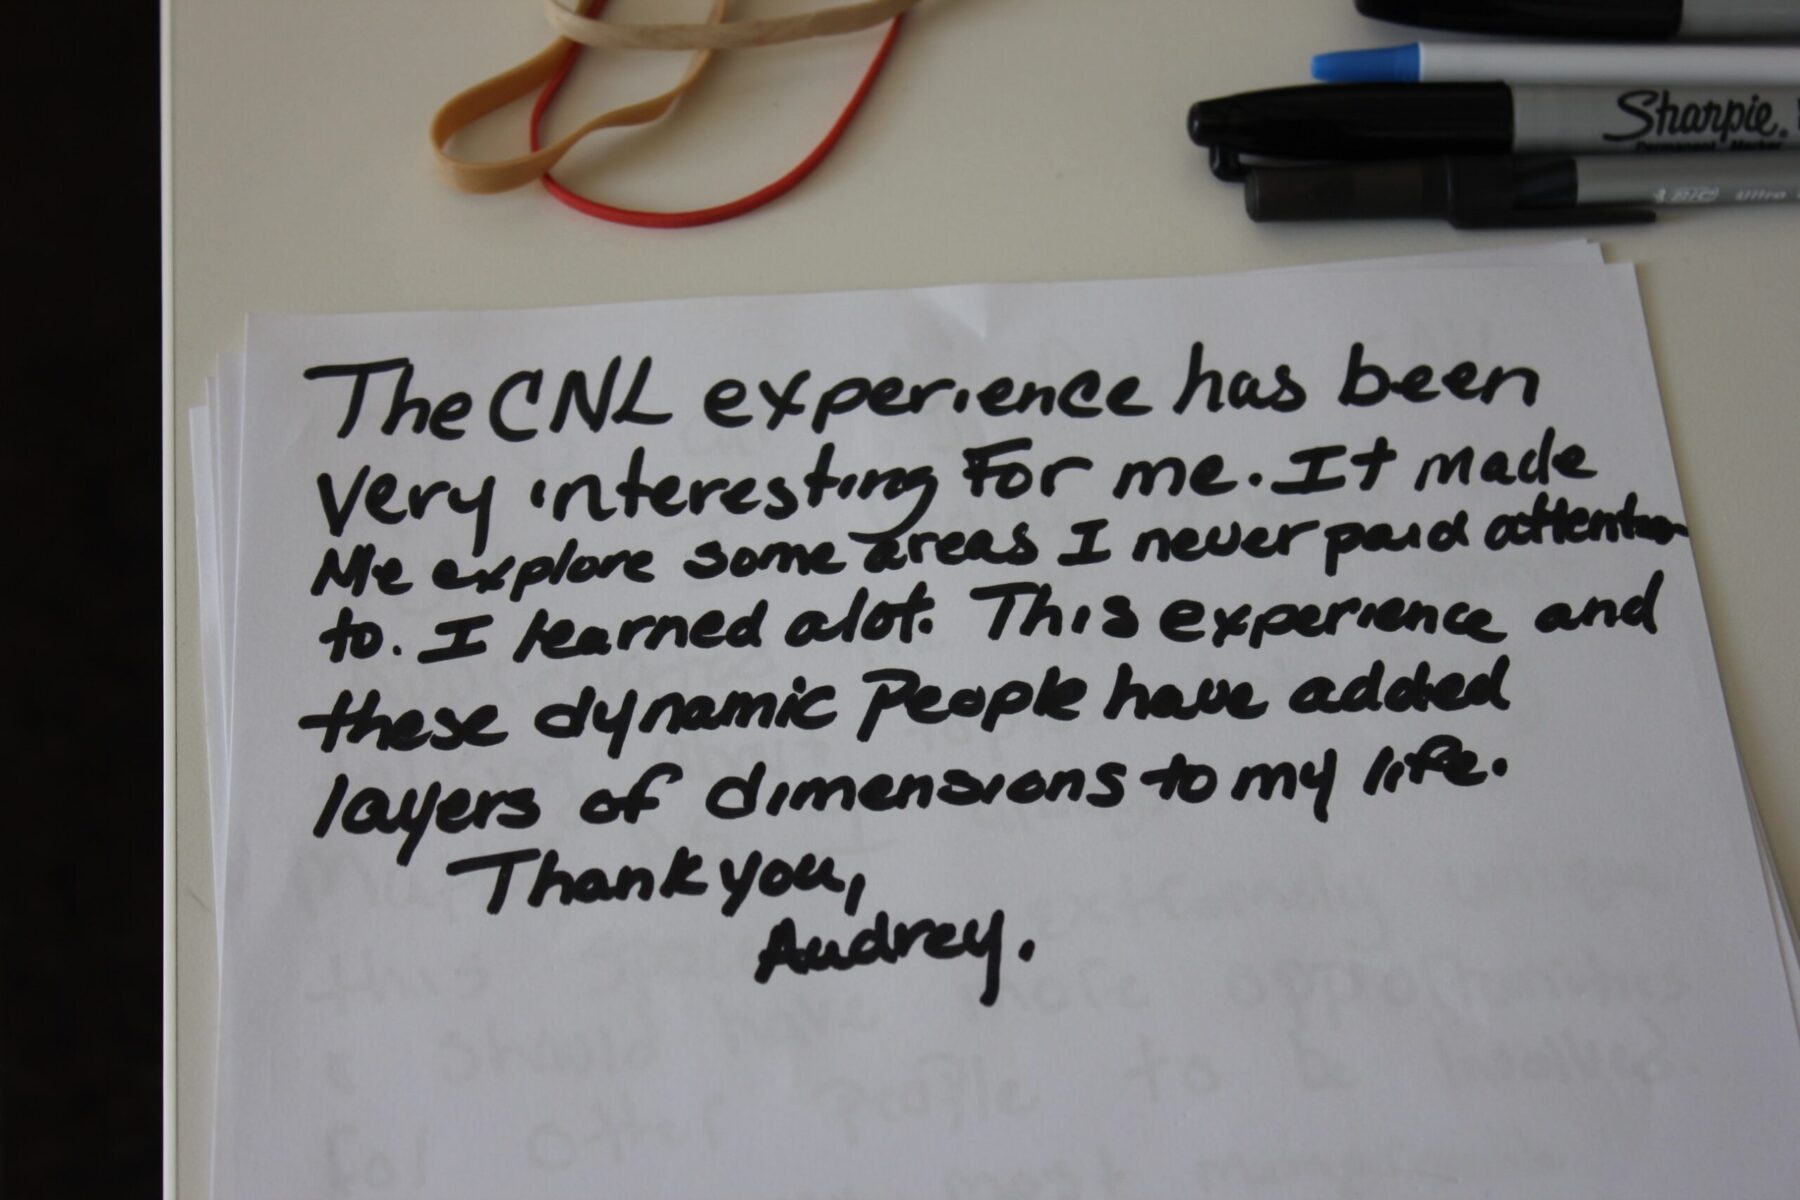 Sharpie.
Permanent Marker
BIC Ultra
The CNL experience has been
very interesting For me. It made
Me explore some areas I never paid attention
to. I learned alot. This experience and
these dynamic People have added
layers of dimensions to my life.
Thank you,
Audrey.
extremely
should have more opportunities
people to be involved